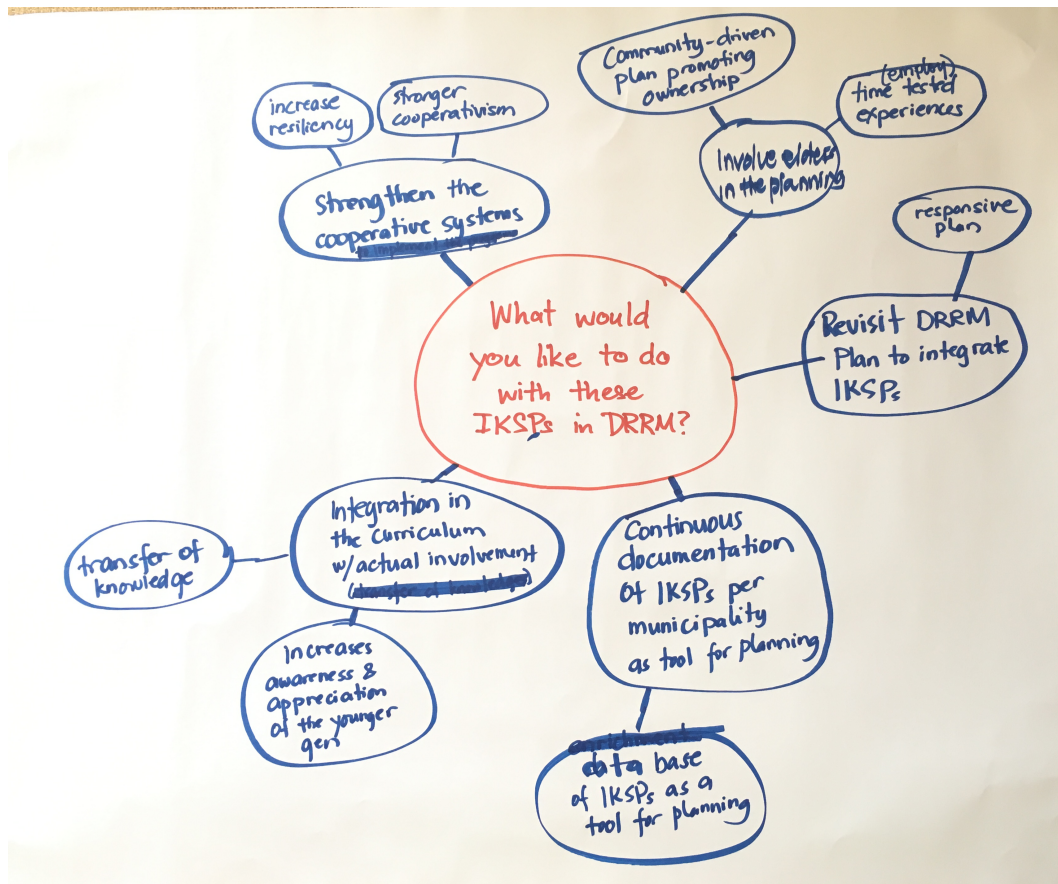 What would
you like to do
with these
IKSPs in DRRM?
increase
resiliency
stronger
cooperativism
Strengthen the
cooperative systems
Community-driven
plan promoting
ownership
(employ)
time tested
experiences
Involve elders
in the planning
responsive
plan
Revisit DRRM
Plan to integrate
IKSPs
Integration in
the curriculum
w/actual involvement
(transfer of knowledge)
transfer of
knowledge
Increases
awareness &
appreciation
of the younger
gen
Continuous
documentation
of IKSPs per
municipality
as tool for planning
enrichment
data base
of IKSPs as a
tool for planning